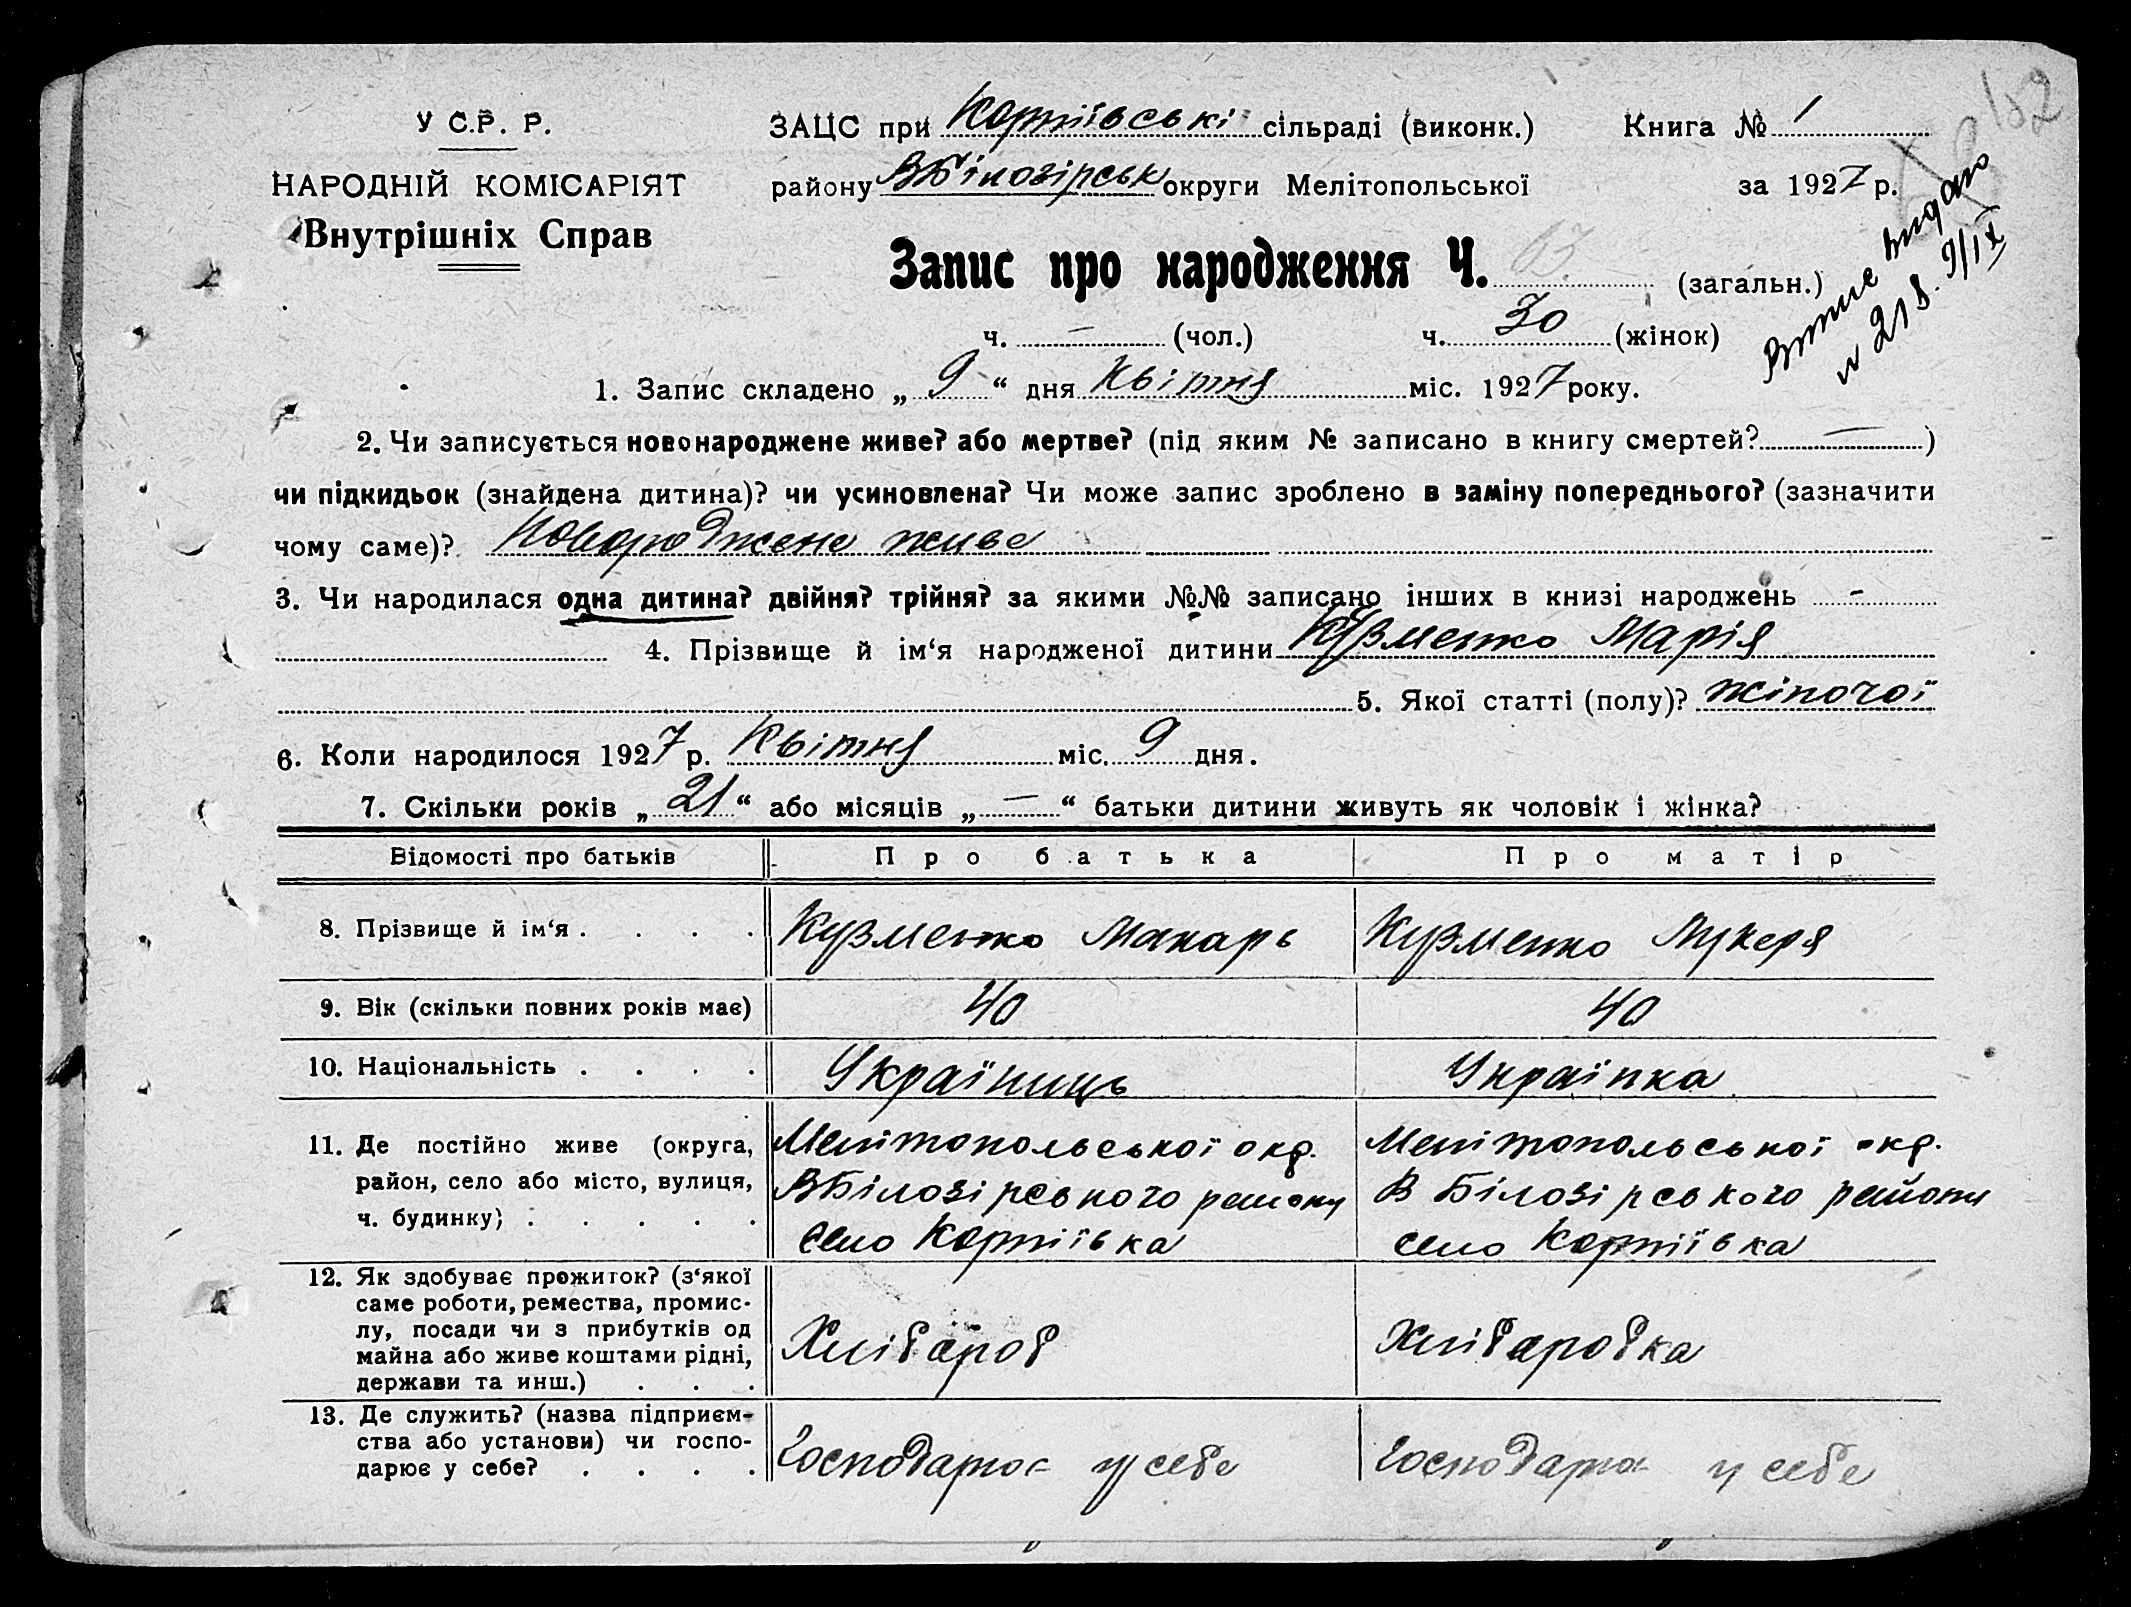 У С.Р. Р.
НАРОДНІЙ КОМІСАРІЯТ
Внутрішніх Справ
ЗАЦС при Корніївські сільраді (виконк.) Книга № 1
району ВБілозірськ округи Мелітопольської за 1927 р.
Запис про народження Ч. (загальн.)
ч. — (чол.) ч. 30 (жінок)
Витяг видано
№ 218. 9/IX
1. Запис складено „ 9 “ дня Квітня міс. 1927 року.
2. Чи записується новонароджене живе? або мертве? (під яким № записано в книгу смертей? — )
чи підкидьок (знайдена дитина)? чи усиновлена? Чи може запис зроблено в заміну попереднього? (зазначити
чому саме)? Новороджене живе
3. Чи народилася одна дитина? двійня? трійня? за якими №№ записано інших в книзі народжень -
4. Прізвище й ім‘я народженої дитини Кузменко Марія
5. Якої статті (полу)? жіночої
6. Коли народилося 1927 р. Квітня міс. 9 дня.
7. Скільки років „ 21 “ або місяців „ — “ батьки дитини живуть як чоловік і жінка?
Відомості про батьків Про батька Про матір
8. Прізвище й ім‘я . . . . Кузменко Макарь Кузменко Лукеря
9. Вік (скільки повних років має) 40 40
10. Національність . . . . Україниць Українка
11. Де постійно живе (округа, Мелітопольської окр. Мелітопольської окр.
район, село або місто, вулиця, ВБілозірського района В Білозірського района
ч. будинку) . . . . . село Корніївка село Корніївка
12. Як здобуває прожиток? (з‘якої
саме роботи, ремества, промис-
лу, посади чи з прибутків од Хлібароб Хлібаробка
майна або живе коштами рідні,
держави та инш.) . . .
13. Де служить? (назва підприєм-
ства або установи) чи госпо- Господарює у себе Господарює у себе
дарює у себе? . . . .